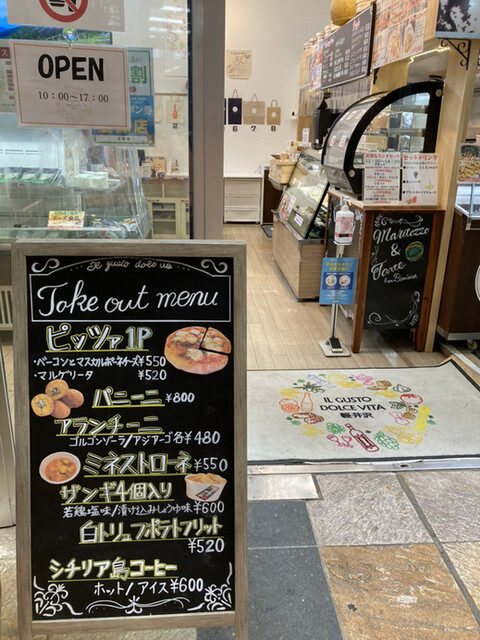 OPEN
10:00〜17:00
Il gusto dolce vita
Take out menu
ピッツァ1P
・ベーコンとマスカルポーネチーズ¥550
・マルゲリータ ¥520
パニーニ ¥800
アランチーニ
ゴルゴンゾーラ/アジアーゴ各¥480
ミネストローネ¥550
ザンギ4個入り
若鶏・塩味/漬け込みしょうゆ味¥600
白トリュフポテトフリット
¥520
シチリア島コーヒー
ホット/アイス¥600
Maritozzo
&
Torte
IL GUSTO
DOLCE VITA
軽井沢
セットドリンク